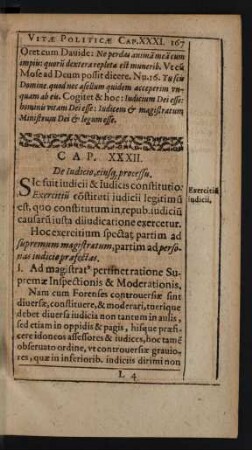 VITÆ POLITICÆ CAP. XXXI. 167
Oret cum Davide: Ne perdas animã meã cum
impiis: quorũ dextera repleta est munerib. Vt cũ
Mose ad Deum possit dicere. Nu. 16. Tu scis
Domine, quod nec asellum quidem acceperim vn-
quam ab eis. Cogitet & hoc: Iudicium Dei esse:
hominis vitam Dei esse: Iudicem & magistratum
Ministrum Dei & legum esse.
CAP. XXXII.
De Iudicio, eiusq; processu.
SIc fuit iudicii & Iudicis constitutio:
Exercitiũ cõstituti iudicii legitimũ
est, quo constitutum in repub. iudiciũ
causarũ iusta diiudicatione exercetur.
Exercitiũ
iudicii.
Hoc exercitium spectat, partim ad
supremum magistratum, partim ad perso-
nas iudicio præfectas.
I. Ad magistratᵘˢ pertinet ratione Su-
premæ Inspectionis & Moderationis.
Nam cum Forenses controversiæ sint
diversæ, constituere, & moderari, utrique
debet diversa iudicia non tantum in aulis,
sed etiam in oppidis & pagis, hisque præfi-
cere idoneos assessores & iudices, hoc tamẽ
observato ordine, vt controversiæ graviо-
res, quæ in inferiorib. indiciis dirimi non
L 4